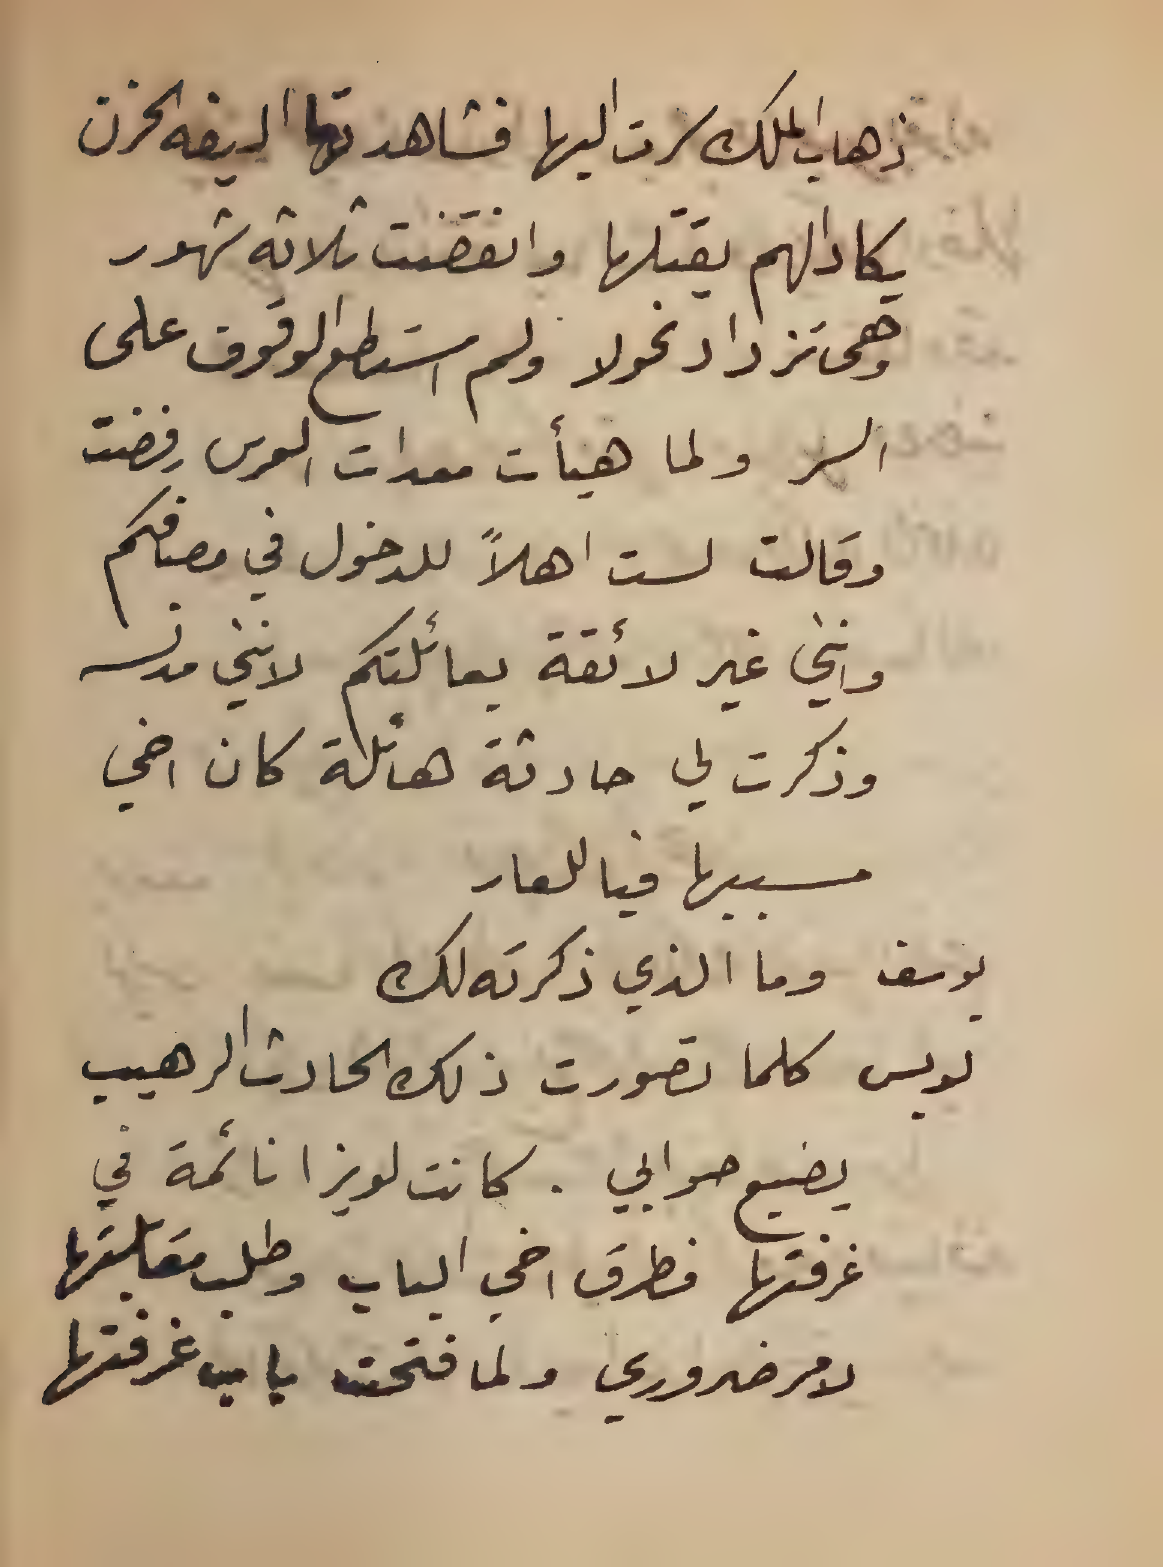 ذهاب الملك سرت اليها فشاهدتها اليفه الحزن
يكاد الهم يقتلها وانقضت ثلاثه شهور
وهي تزداد نحولا ولم استطع الوقوف على
السر ولما هيأت معدات العرس رفضت
وقالت لست اهلاً للدخول في مصافكم
وانني غير لائقة بعائلتكم لانني مدنسه
وذكرت لي حادثة هائلة كان اخي
مسببها فيا للعار
يوسف وما الذي ذكرته لك
لويس كلما تصورت ذلك الحادث الرهيب
يضيع صوابي . كانت لويزا نائمة في
غرفتها فطرق اخي الباب وطلب مقابلتها
لامر ضروري ولما فتحت باب غرفتها